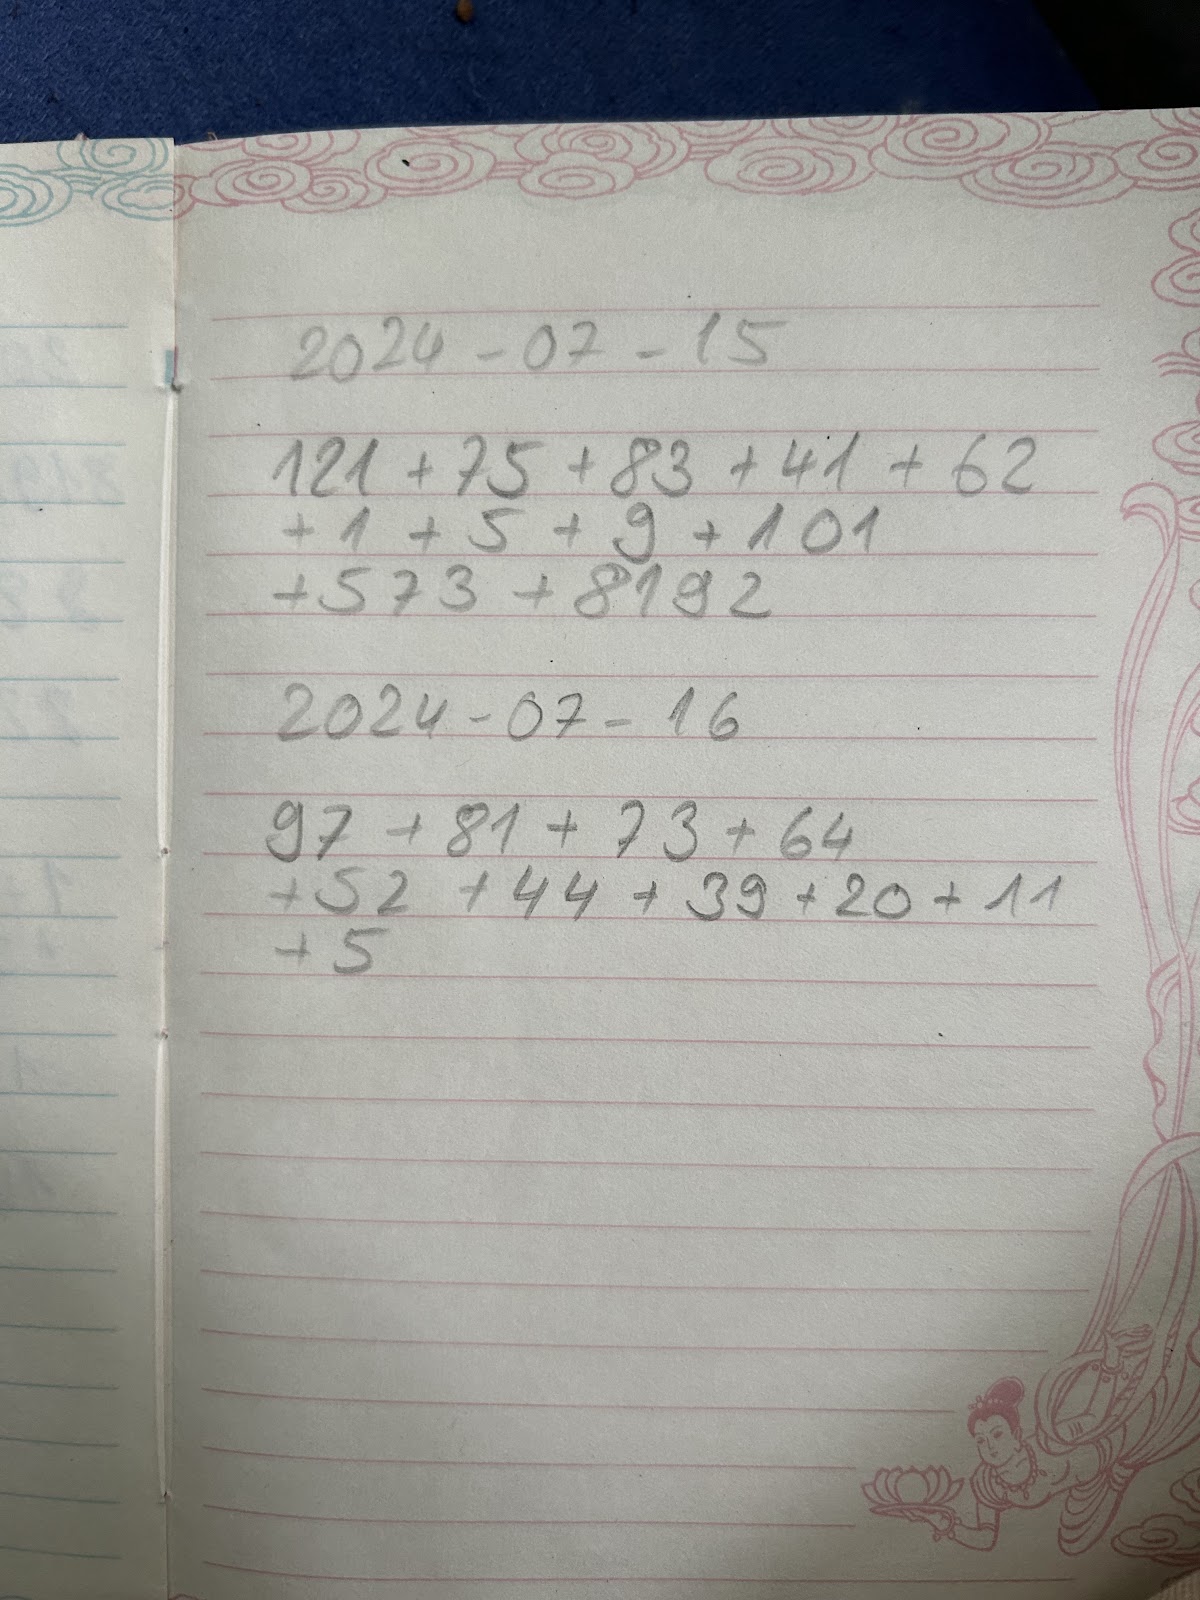 2024-07-15
121+75+83+41+62
+1+5+9+101
+573+8192
2024-07-16
97+81+73+64
+52+44+39+20+11
+5